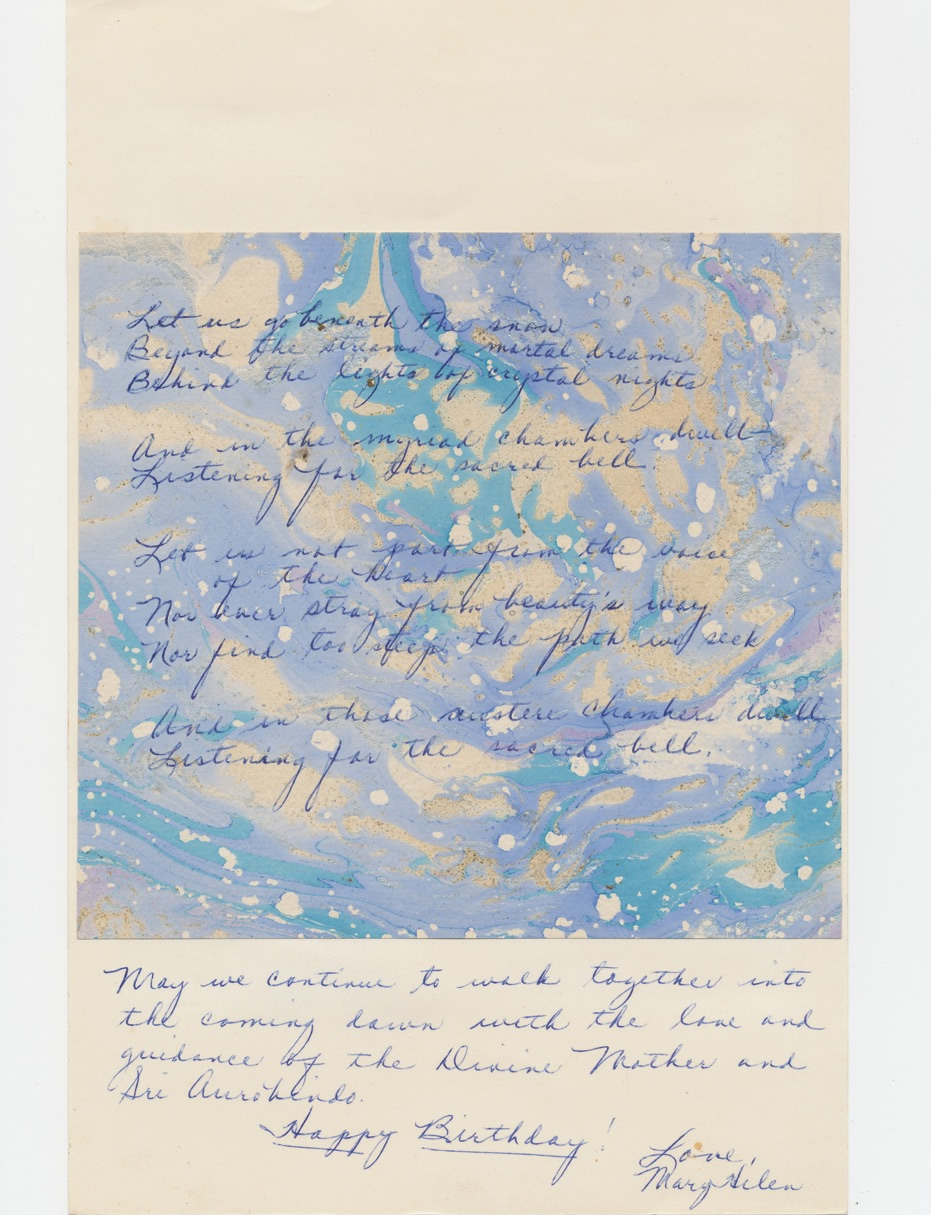 Let us go beneath the snow
Beyond the streams of mortal dreams
Behind the lights of crystal nights
And in the myriad chambers dwell
Listening for the sacred bell.
Let us not part from the voice
of the heart
Nor ever stray from beauty's way
Nor find too steep the path we seek
And in those austere chambers dwell
Listening for the sacred bell.
May we continue to walk together into
the coming dawn with the love and
guidance of the Divine Mother and
Sri Aurobindo.
Happy Birthday!
Love,
Mary Helen